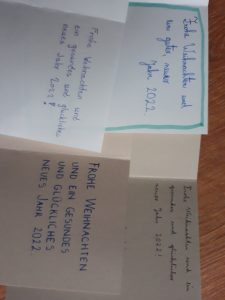 Frohe Weihnachten und
ein gesundes und glückliches
neues Jahr 2022!
Frohe Weihnachten und
ein gutes neues
Jahr 2022
FROHE WEIHNACHTEN
UND EIN GESUNDES
UND GLÜCKLICHES
NEUES JAHR 2022
Frohe Weihnachten und ein
gesundes und glückliches
neues Jahr 2022!